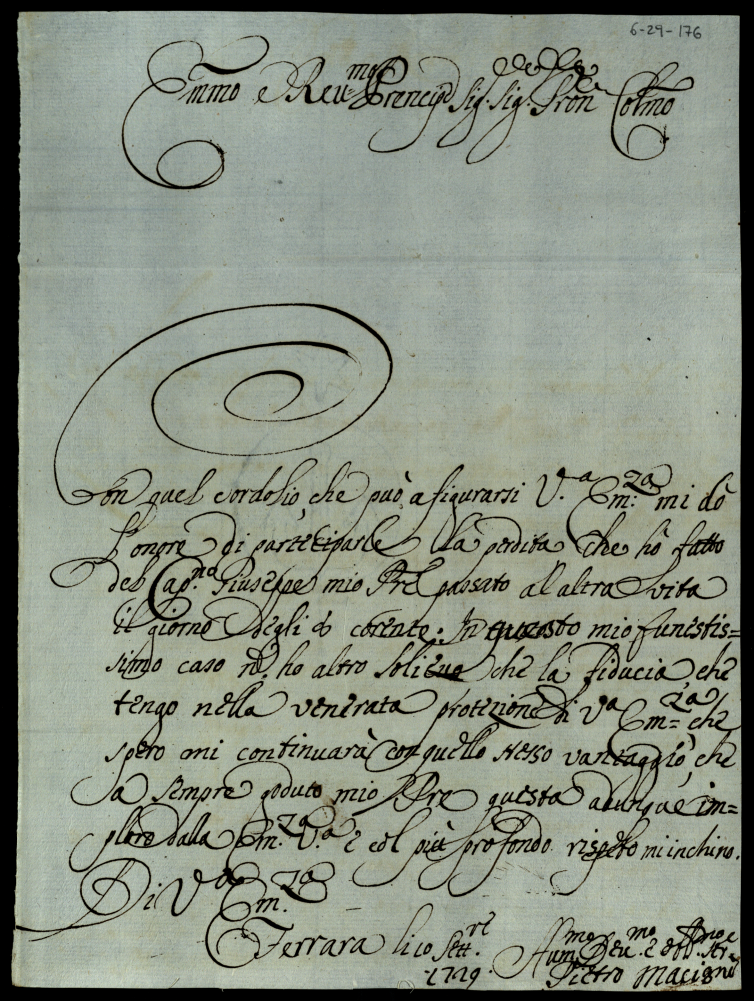 6-29-176
Emmo e Reu.mo Prencipe Sig. Sig. Pron Colmo
Con quel cordolio, che può afigurarsi V.a Em.za mi dò
l'onore di parteciparle la perdita che hò fatto
del Cap.no Giuseppe mio Pre passato al altra vita
il giorno degli 8 corente. In questo mio funestis=
simo caso nō ho altro solieuo che la fiducia che
tengo nella venerata protezione di V.a Em.za che
spero mi continuarà con quello stesso vantaggio, che
a sempre goduto mio Pre questa adunque im=
ploro dalla Em.za V.a e col più profondo rispetto mi inchino.
Di V.a Em.za
Ferrara li 10 Sett.re
1729.
Aum.mo Deu.mo e Obb.mo Ser.re
Pietro Macigni